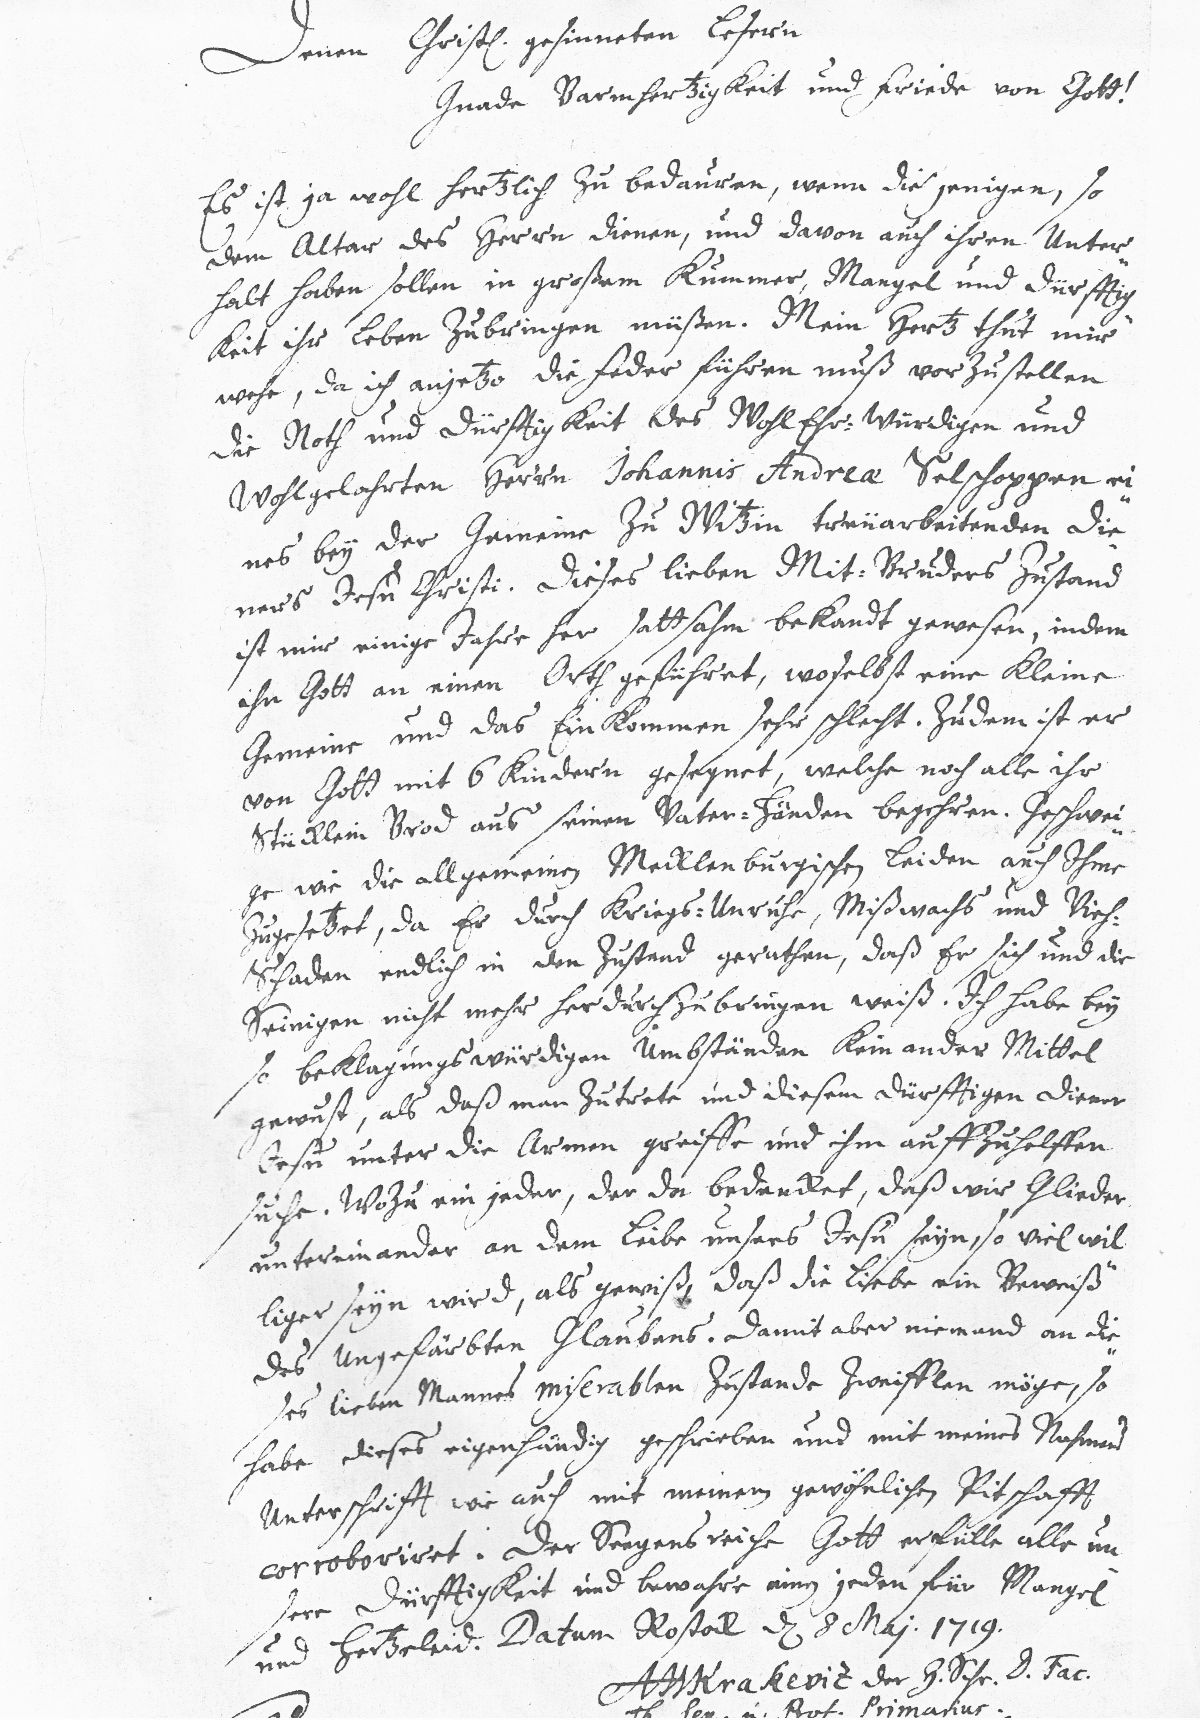 Denen Christl. gesinneten Lesern
Gnade Barmhertzigkeit und Friede von Gott!
Es ist ja wohl hertzlich zu bedauren, wenn die jenigen, so
dem Altar des Herrn dienen, und davon auch ihren Unter-
halt haben sollen in großem Kummer, Mangel und Dürfftig-
keit ihr Leben zubringen müßen. Mein Hertz thut mir
wehe, da ich anjetzo die Feder führen muß vorzustellen
die Noth und Dürfftigkeit des WohlEhr-Würdigen und
Wohlgelahrten Herrn Johannis Andreæ Selschoppen ei-
nes bey der Gemeine zu Witzin treüarbeitenden Die-
ners Jesu Christi. Dieses lieben Mit-Bruders Zustand
ist mir einige Jahre her sattsahm bekandt gewesen, indem
ihn Gott an einen Orth geführet, woselbst eine kleine
Gemeine und das Einkommen sehr schlecht. Zudem ist er
von Gott mit 6 Kindern gesegnet, welche noch alle ihr
Stücklein Brod aus seinen Vater-Händen begehren. Geschwei-
ge wie die allgemeinen Mecklenburgischen Leiden auch Ihme
zugesetzet, da Er durch Kriegs-Unruhe, Mißwachs und Vieh-
Schaden endlich in den Zustand gerathen, daß Er sich und die
Seinigen nicht mehr herdurchzubringen weiß. Ich habe bey
so beklagungswürdigen Umbständen kein ander Mittel
gewust, als daß man zutrete und diesem dürfftigen Diener
Jesu unter die Armen greiffe und ihm auffzuhelffen
suche. Wozu ein jeder, der da bedencket, daß wir Glieder
untereinander an dem Leibe unsers Jesu seyn, so viel wil-
liger seyn wird, als gewiß, daß die Liebe ein Beweiß
des Ungefärbten Glaubens. Damit aber niemand an die-
ses lieben Mannes miserablen Zustande zweifflen möge, so
habe dieses eigenhändig geschrieben und mit meines Nahmens
Unterschrifft wie auch mit meinem gewöhnlichen Pitschafft
corroboriret. Der Seegensreiche Gott erfülle alle un-
sere Dürfftigkeit und bewahre einen jeden für Mangel
und Hertzeleid. Datum Rostock d. 8 Maj. 1719.
AJKrakeviz der H. Schr. D. Fac.
Th. Sen. u. Prof. Primarius.